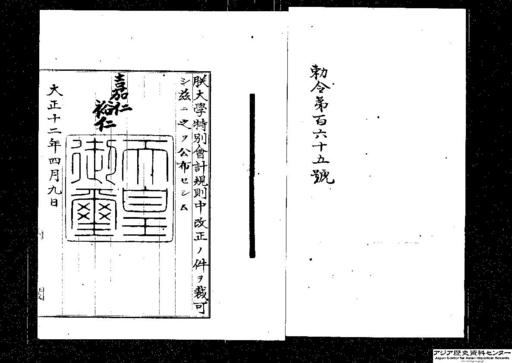 勅令第百六十五號
朕大學特別會計規則中改正ノ件ヲ裁可
シ茲ニ之ヲ公布セシム
嘉仁
裕仁
天皇
御璽
大正十二年四月九日
アジア歴史資料センター
Japan Center for Asian Historical Records